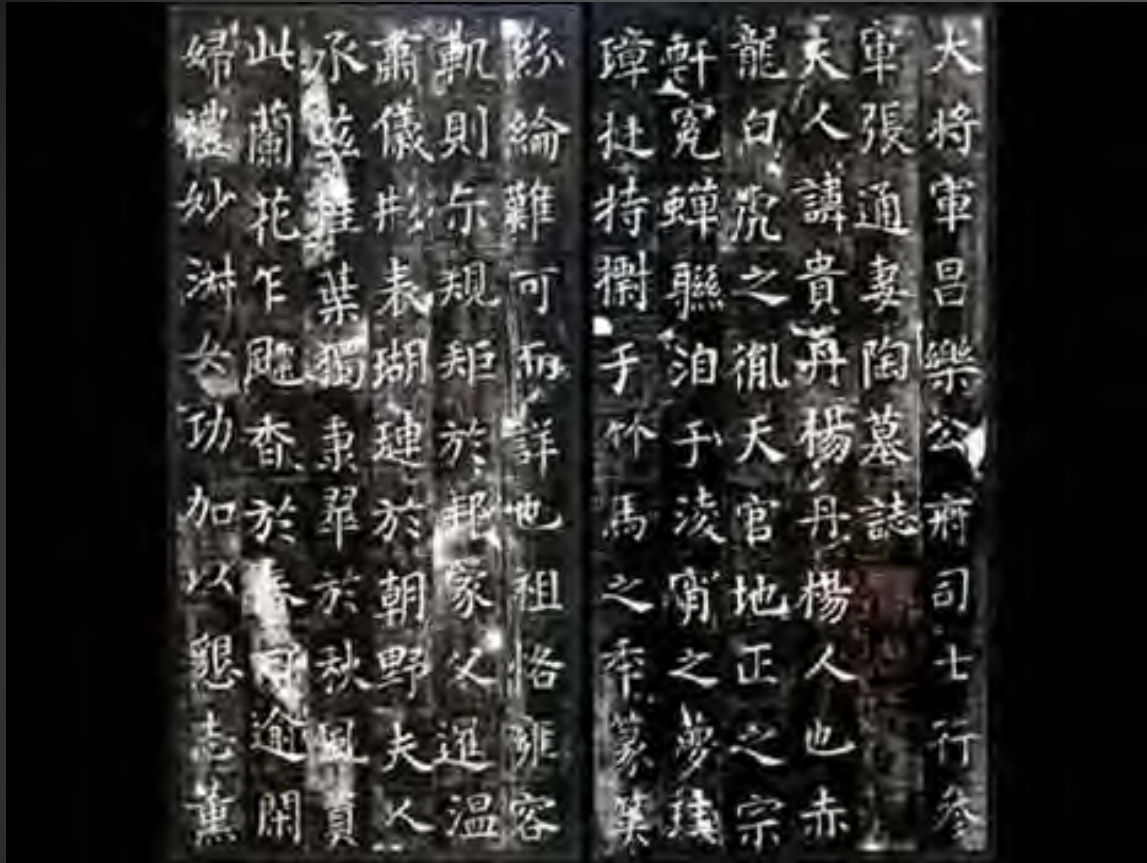 大將軍昌樂公府司士行參
軍張通妻陶墓誌
夫人諱貴丹楊丹楊人也赤
龍白虎之胤天官地正之宗
軒冕蟬聯洎于淩霄之夢珪
璋挺特衢于竹馬之年篆策
絲綸難可而詳也祖恪雍容
軌則尓規矩於邦家父暹温
肅儀形表瑚璉於朝野夫人
承茲桂葉獨秉翠於秋風資
此蘭花乍飃香於春日逾閑
婦禮妙淋女功加以懇志薰